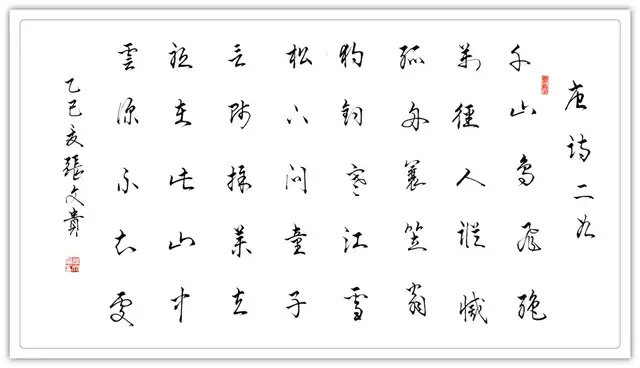 唐诗二首
千山鸟飛绝
萬徑人蹤滅
孤舟蓑笠翁
独钓寒江雪
松下问童子
言师採药去
祗在此山中
雲深不知处
乙巳夏張文貴